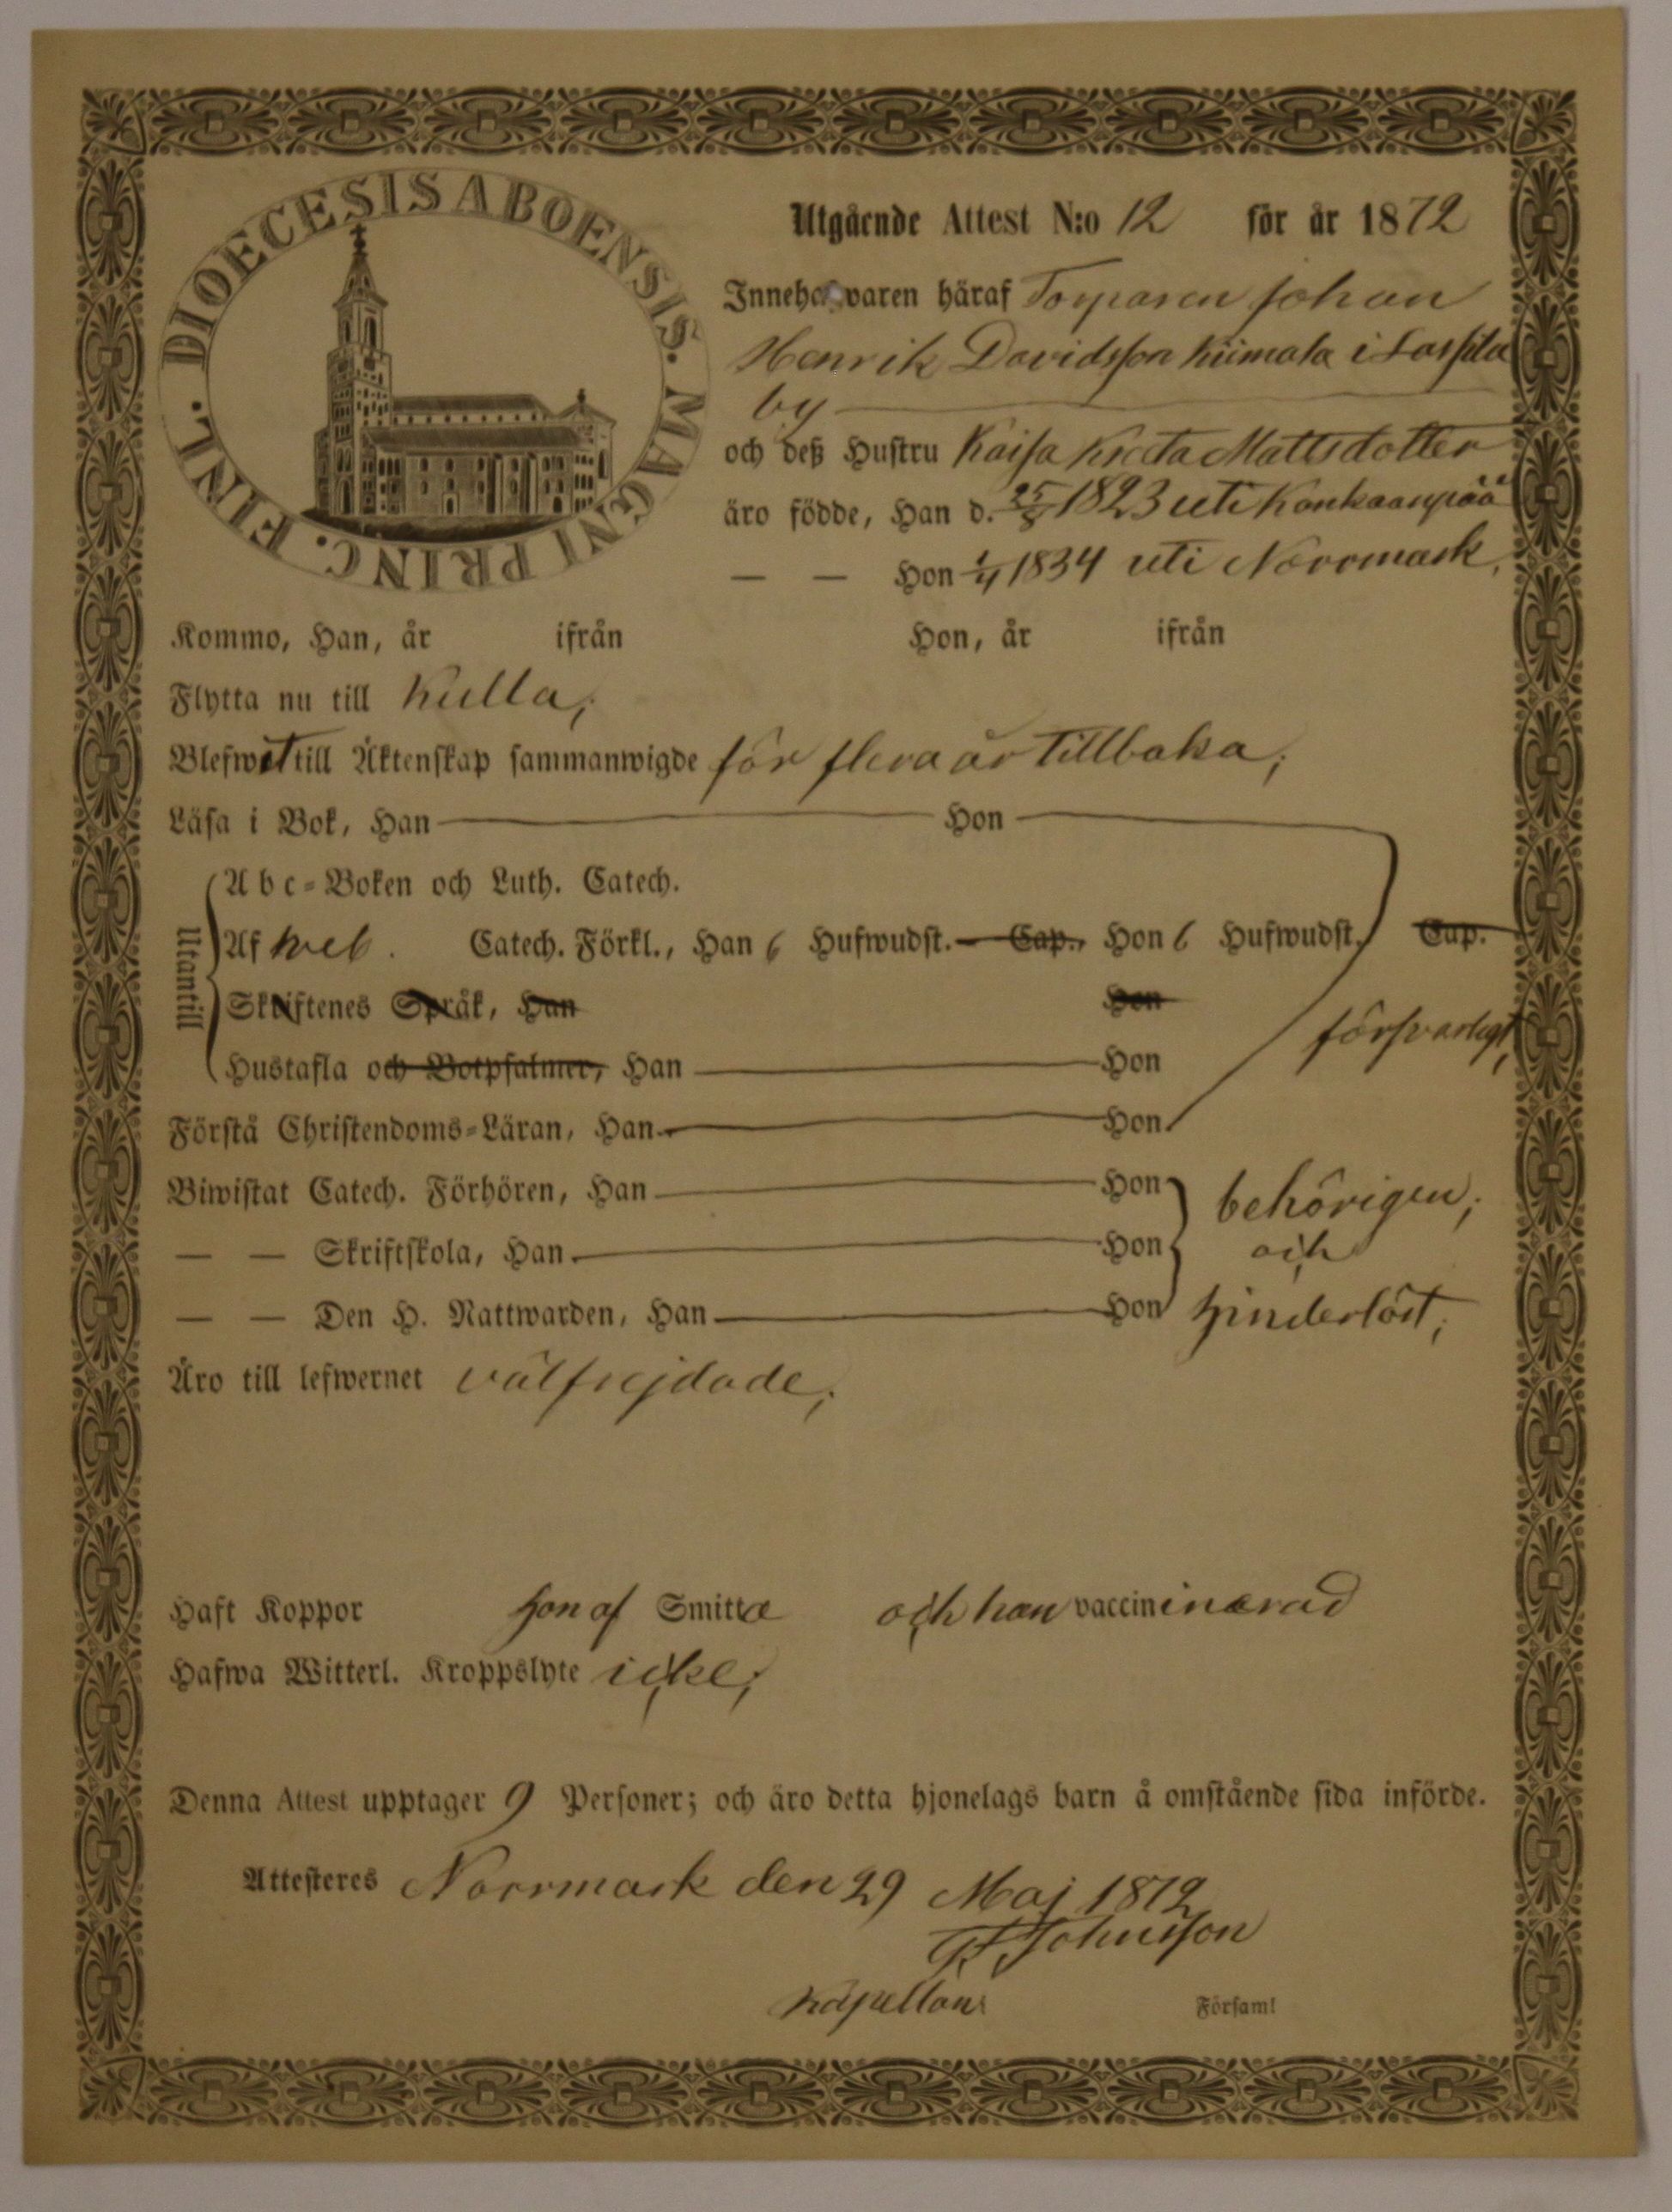 DIOECESIS ABOENSIS. MAGNI PRINC. FINL.
Utgående Attest N:o 12 för år 1872
Innehafwaren häraf Torparen Johan
Henrik Davidsson Kiimala i Lassila
by
och deß Hustru Kaisa Kreta Mattsdotter
äro födde, Han d. 25/8 1823 uti Kankaanpää
— — Hon 1/4 1834 uti Norrmark,
Kommo, Han, år ifrån Hon, år ifrån
Flytta nu till Kulla;
Blefwet till Äktenskap sammanwigde för flera år tillbaka;
Läsa i Bok, Han Hon
Utantill
Abc-Boken och Luth. Catech.
Af Catech. Förkl., Han 6 Hufwudst. Cap., Hon 6 Hufwudst. Cap.
Skriftenes Språk, Han Hon
försvarligt,
Hustafla och Botpsalmer, Han Hon
Förstå Christendoms-Läran, Han Hon
Biwistat Catech. Förhören, Han Hon behörigen;
— — Skriftskola, Han Hon och
— — Den H. Nattwarden, Han Hon hinderlöst;
Äro till lefwernet välfrejdade;
Haft Koppor hon af Smitta och han vaccininerad
Hafwa Witterl. Kroppslyte icke;
Denna Attest upptager 9 Personer; och äro detta hjonelags barn å omstående sida införde.
Attesteres Norrmark den 29 Maj 1872
Johnsson
Kapellan. Församl